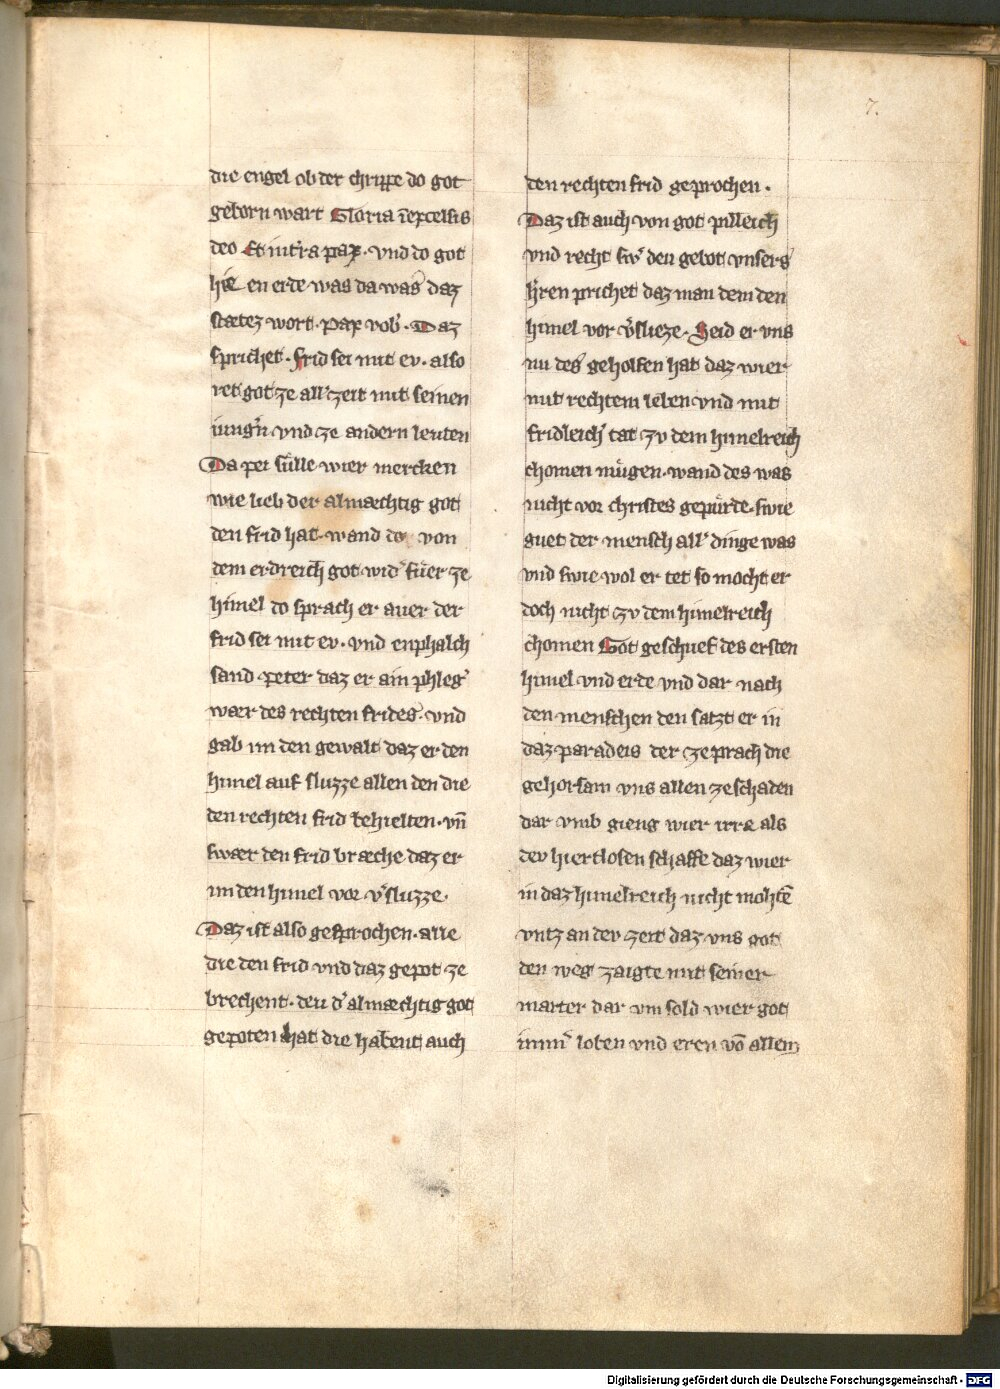 7.
die engel ob der chrippe do got
geborn wart Gloria ī excelsis
deo Et in t̄ra pax · vnd do got
hie en erde was da was daz
stætez wort · pax vob̾ · Daz
sprichet · frid sei mit ev · also
ret got ze all̾ zeit mit seinen
iung̾n vnd ze andern leuten
Da pei sülle wier mercken
wie lieb der almæchtig got
den frid hat · wand do von
dem erdreich got wid̾ fuer ze
himel do sprach er auer der
frid sei mit ev · vnd enphalch
sand peter daz er ain phleg̾
wær des rechten frides · vnd
gab im den gewalt daz er den
himel auf sluzze allen den die
den rechten frid behielten · vn̄
swær den frid bræche daz er
im den himel vor v̾sluzze ·
Daz ist also gesprochen · alle
die den frid vnd daz gepot ze
brechent · deu d̾ almæchtig got
gepoten hat die habent auch
den rechten frid geprochen ·
Daz ist auch von got pilleich
vnd recht sw̾ den gebot vnsers
h̾ren prichet daz man dem den
himel vor v̾slieze · Seid er vns
nu des geholfen hat daz wier
mit rechtem leben vnd mit
fridleich̾ tat zv dem himelreich
chomen mügen · wand des was
nicht vor christes gepürde · swie
guet der mensch all̾ dinge was
vnd swie wol er tet so mocht er
doch nicht zv dem himelreich
chomen Got geschuef des ersten
himel vnd erde vnd dar nach
den menschen den satzt er in
daz paradeis der zeprach die
gehorsam vns allen ze schaden
dar vmb gieng wier irre als
dev hiertlosen schaffe daz wier
in daz himelreich nicht mohtē
vntz an dev zeit daz vns got
den weg zaigte mit seiner
marter dar vm sold wier got
imm̾ loben vnd eren vō allem
Digitalisierung gefördert durch die Deutsche Forschungsgemeinschaft - DFG